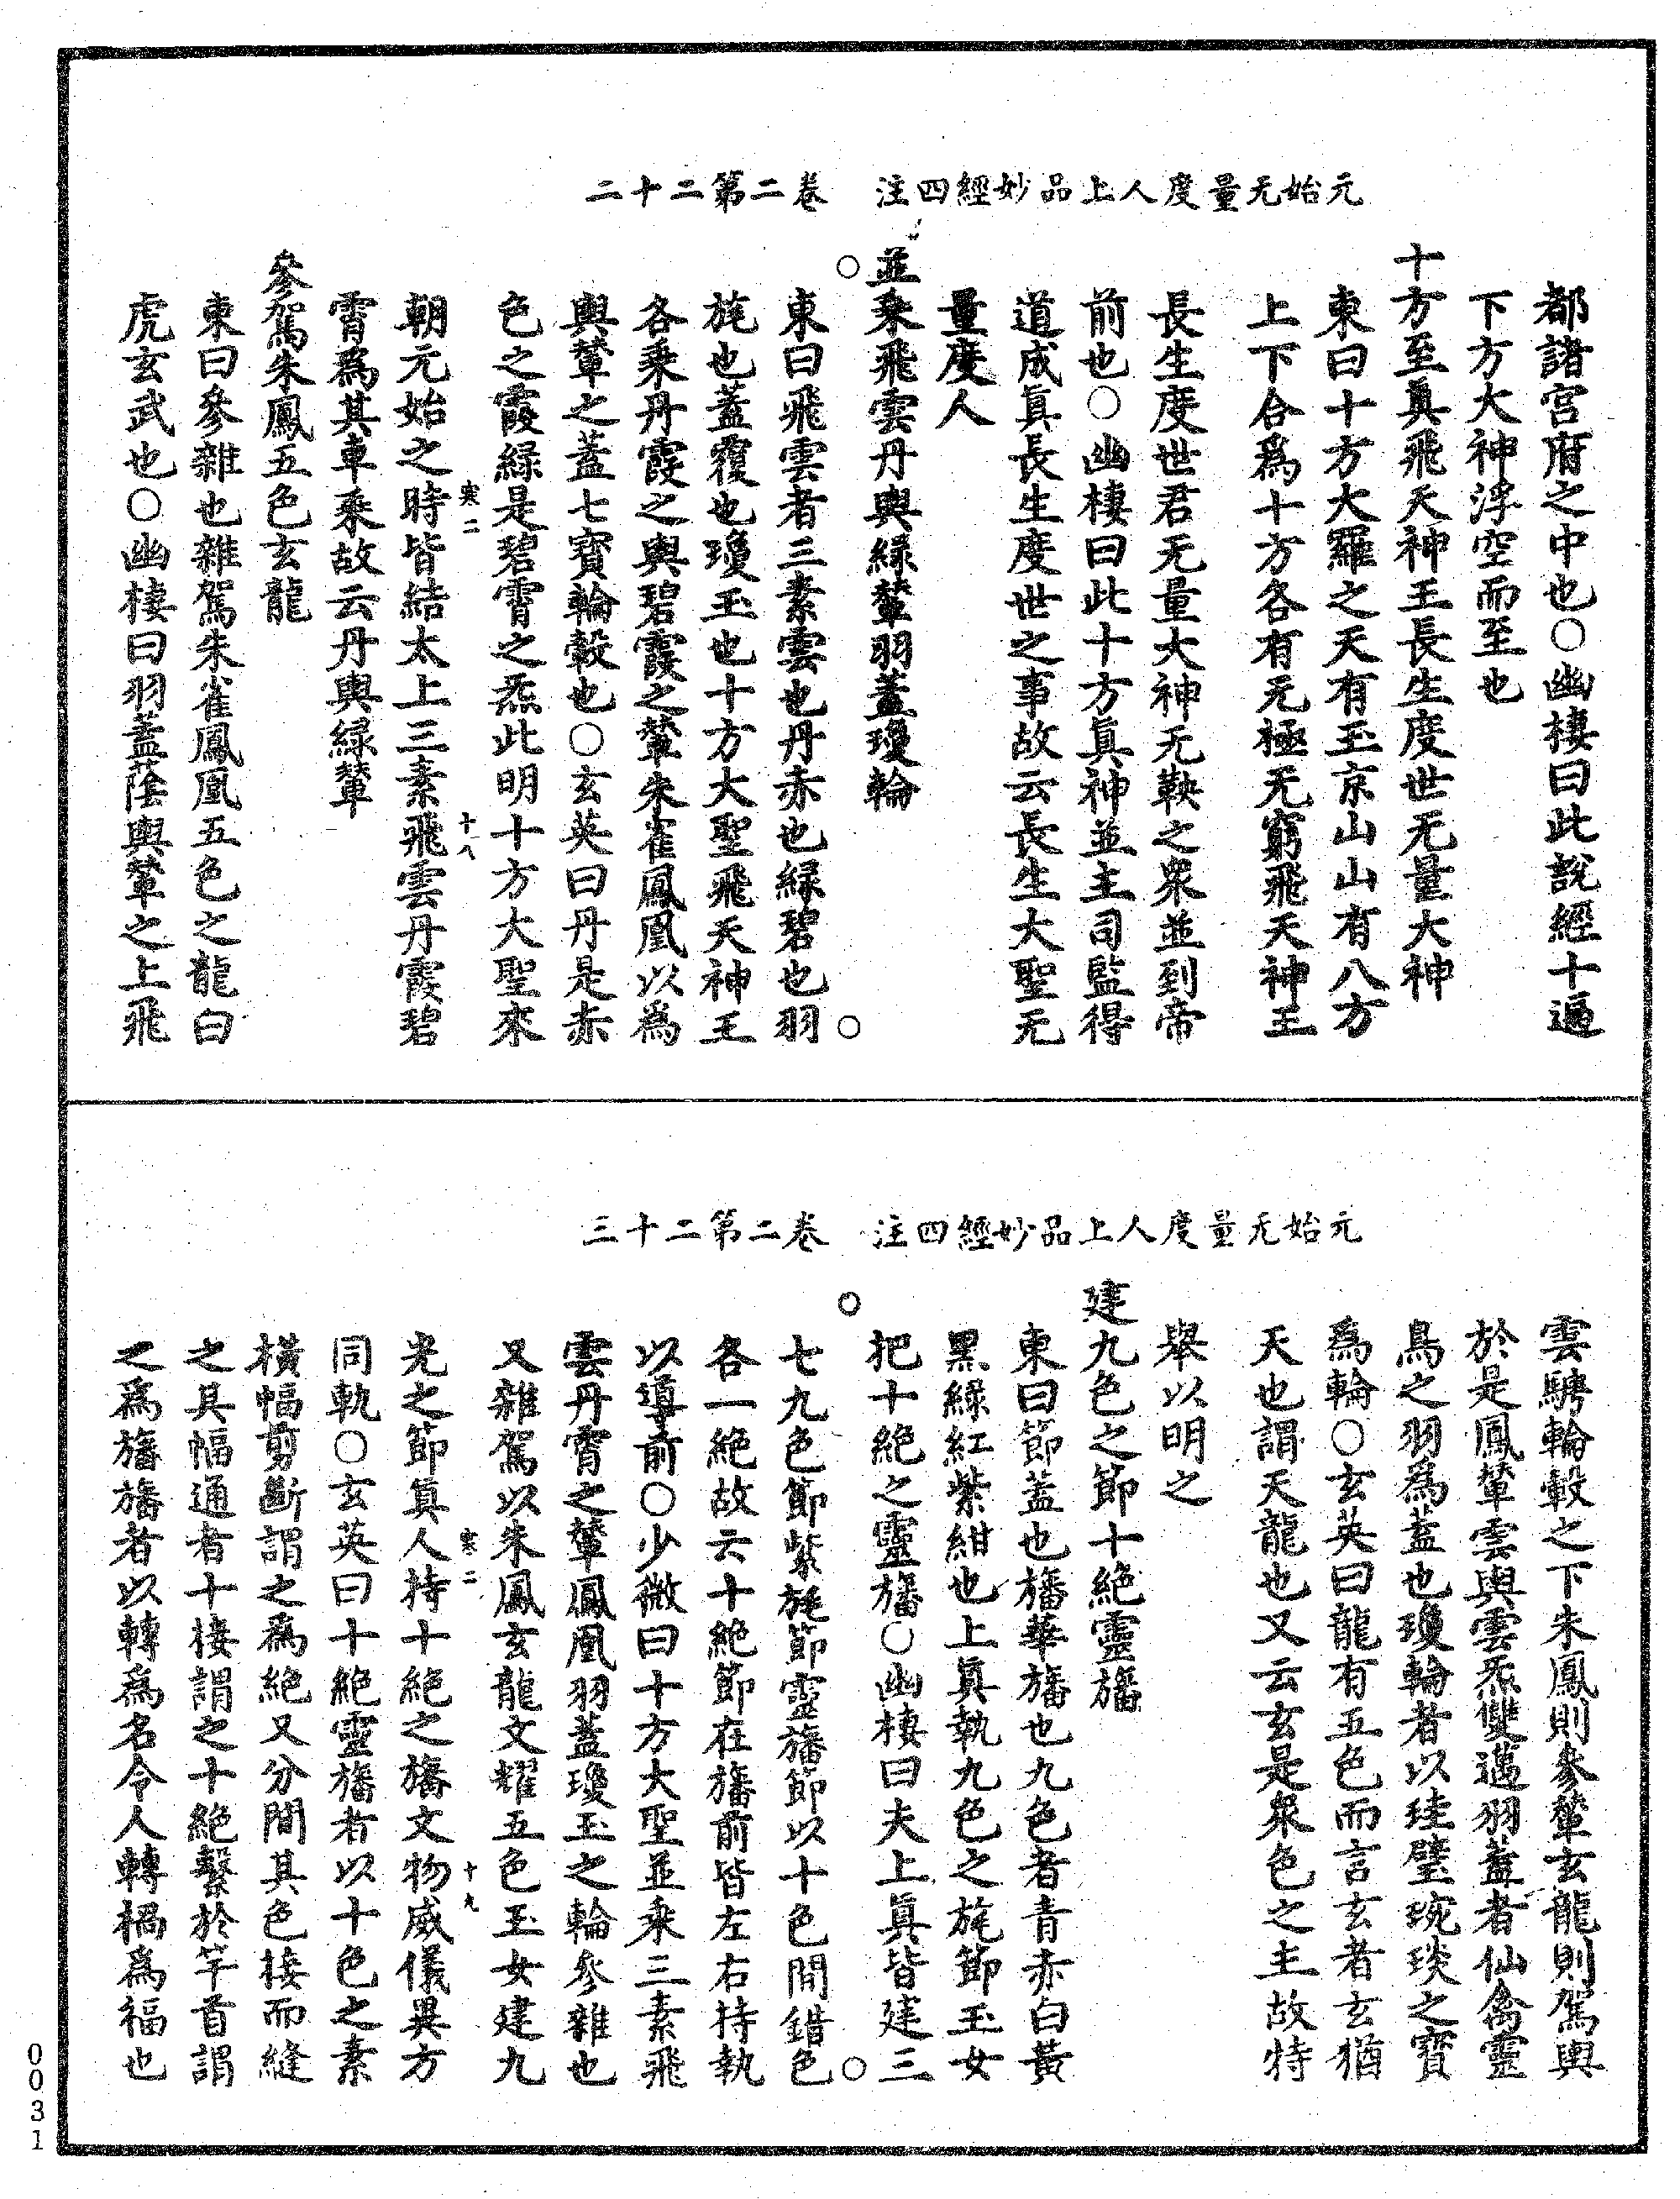 元始无量度人上品妙經四注　卷二第二十二
都諸宮府之中也〇幽棲曰此說經十遍
下方大神浮空而至也
十方至真飛天神王長生度世无量大神
東曰十方大羅之天有玉京山山有八方
上下合為十方各有无極无窮飛天神王
長生度世君无量大神无鞅之衆並到帝
前也〇幽棲曰此十方真神並主司監得
道成真長生度世之事故云長生大聖无
量度人
並乘飛雲丹輿綠輦羽蓋瓊輪
東曰飛雲者三素雲也丹赤也綠碧也羽
旄也蓋覆也瓊玉也十方大聖飛天神王
各乘丹霞之輿碧霞之輦朱雀鳳凰以為
輿輦之蓋七寶輪轂也〇玄英曰丹是赤
色之霞綠是碧霄之炁此明十方大聖來
寒二　十八
朝元始之時皆結太上三素飛雲丹霞碧
霄為其車乘故云丹輿綠輦
參駕朱鳳五色玄龍
東曰參雜也雜駕朱雀鳳凰五色之龍白
虎玄武也〇幽棲曰羽蓋蔭輿輦之上飛
元始无量度人上品妙經四注　卷二第二十三
雲騁輪轂之下朱鳳則參輦玄龍則駕輿
於是鳳輦雲輿雲炁雙邁羽蓋者仙禽靈
鳥之羽為蓋也瓊輪者以珪璧琬琰之寶
為輪〇玄英曰龍有五色而言玄者玄猶
天也謂天龍也又云玄是衆色之主故特
舉以明之
建九色之節十絶靈旛
東曰節蓋也旛華旛也九色者青赤白黃
黑綠紅紫紺也上真執九色之旄節玉女
把十絶之靈旛〇幽棲曰夫上真皆建三
七九色節紫旄節靈旛節以十色間錯色
各一絶故云十絶節在旛前皆左右持執
以導前〇少微曰十方大聖並乘三素飛
雲丹霄之輦鳳凰羽蓋瓊玉之輪參雜也
又雜駕以朱鳳玄龍文耀五色玉女建九
寒二　十九
光之節真人持十絶之旛文物威儀異方
同軌〇玄英曰十絶靈旛者以十色之素
橫幅剪斷謂之為絶又分間其色接而縫
之其幅通者十接謂之十絶繫於竿首謂
之為旛旛者以轉為名令人轉禍為福也
0031